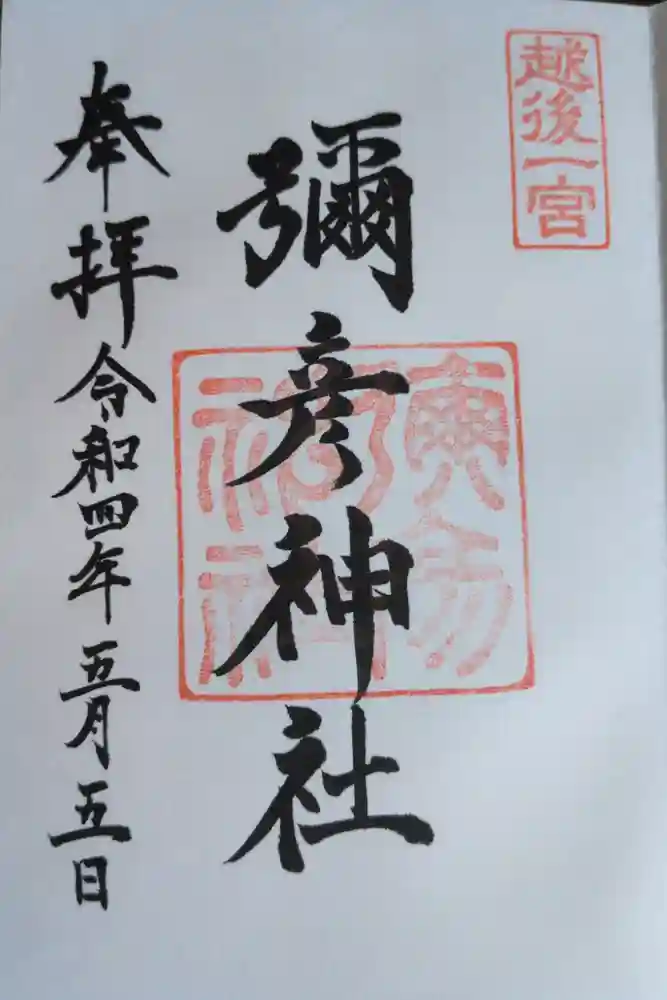 越後一宮
彌彦神社
奉拝
令和四年五月五日